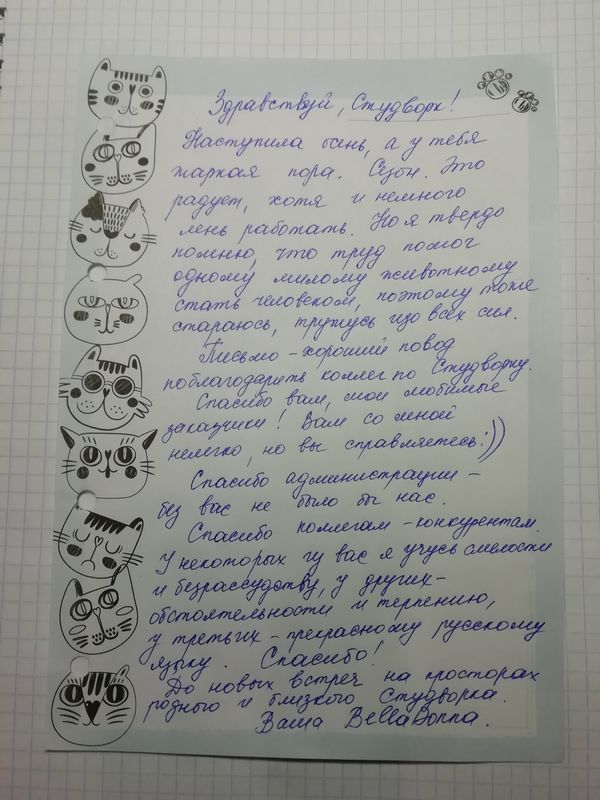 Здравствуй, Студворк!
Наступила осень, а у тебя
жаркая пора. Сезон. Это
радует, хотя и немного
лень работать. Но я твердо
помню, что труд помог
одному милому животному
стать человеком, поэтому тоже
стараюсь, тружусь изо всех сил.
Письмо - хороший повод
поблагодарить коллег по Студворку.
Спасибо вам, мои любимые
заказчики! Вам со мной
нелегко, но вы справляетесь!))
Спасибо администрации -
без вас не было бы нас.
Спасибо коллегам - конкурентам.
У некоторых из вас я учусь смелости
и безрассудству, у других -
обстоятельности и терпению,
у третьих - прекрасному русскому
языку. Спасибо!
До новых встреч на просторах
родного и близкого Студворка.
Ваша BellaDonna.